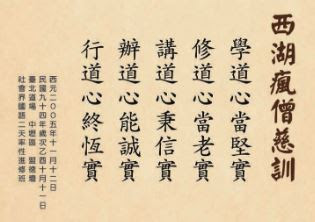 西湖瘋僧慈訓
學道心當堅實
修道心當老實
講道心秉信實
辦道心能誠實
行道心終恆實
西元二００五年十一月十二日
民國九十四年歲次乙酉十月十一日
臺北道場　中壢區　盟德壇
社會界國語二天率性進修班